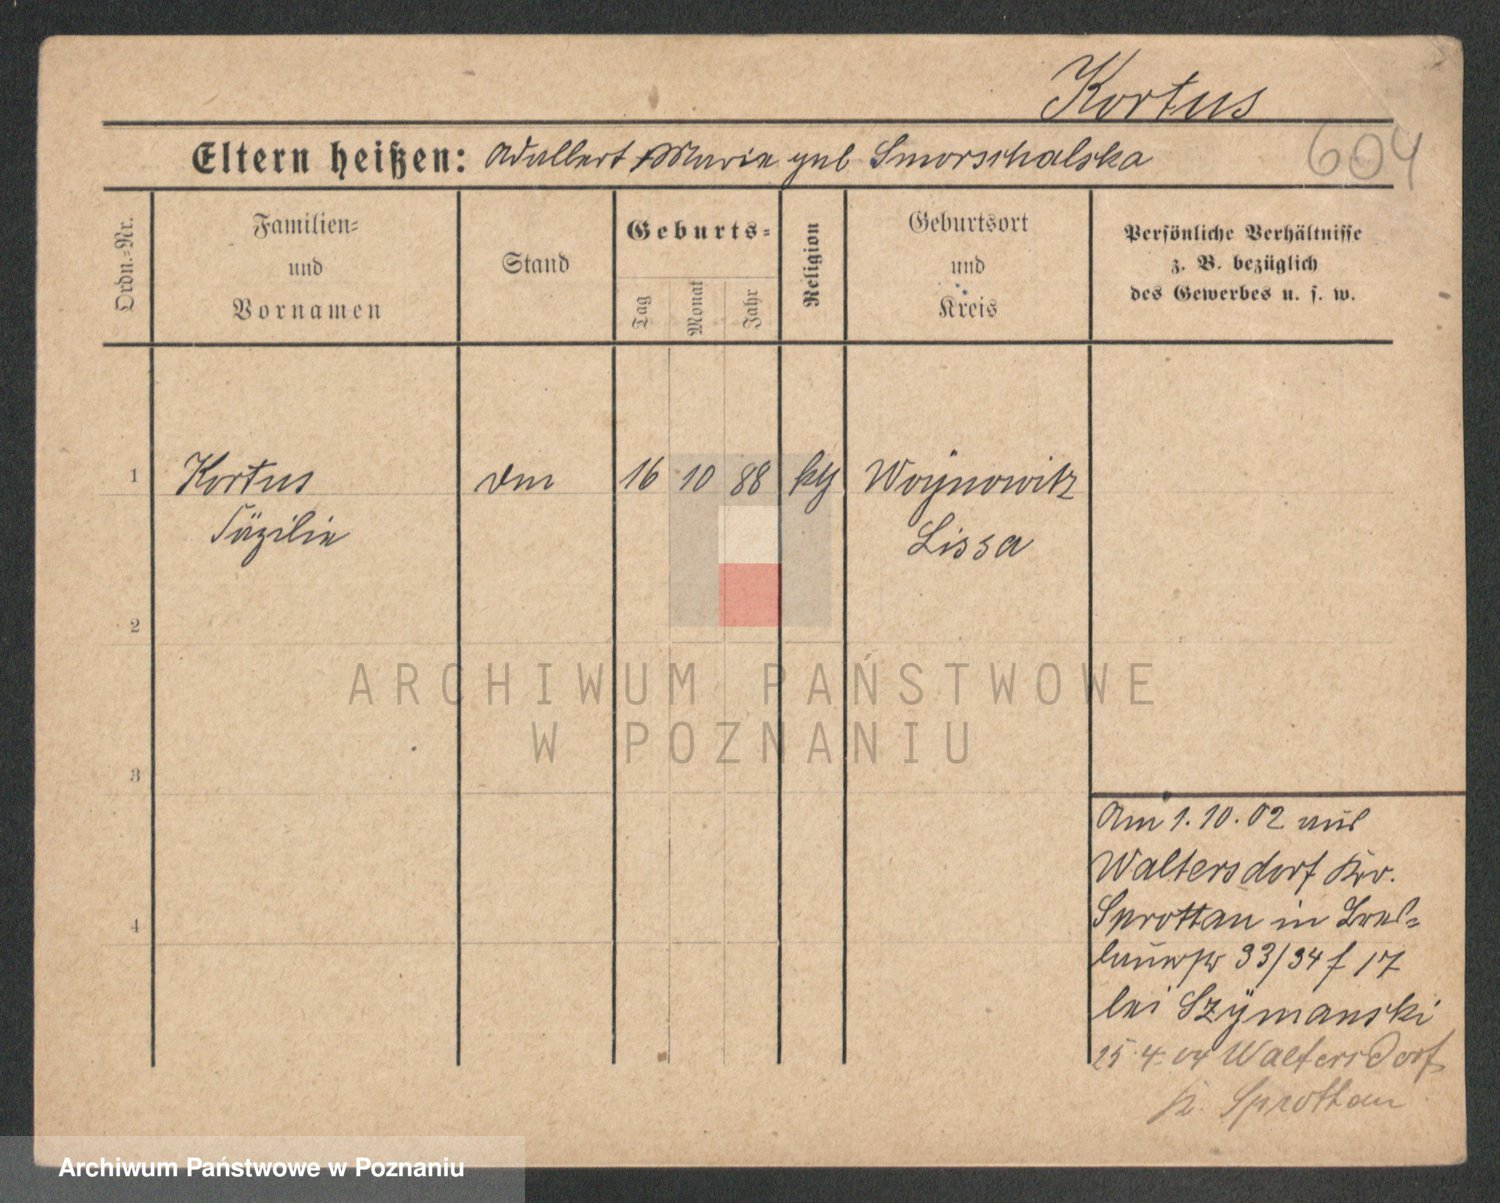 Kortus
604
Eltern heißen: Adalbert Marie geb Smorschalska
Ordn.-Nr.
Familien-
und
Vornamen
Stand
Geburts-
Tag
Monat
Jahr
Religion
Geburtsort
und
Kreis
Persönliche Verhältnisse
z. B. bezüglich
des Gewerbes u. s. w.
1 Kortus 16 10 88 Woynowitz
Cäzilie Lissa
2
3
4
Am 1.10.02 aus
Waltersdorf Kr.
Sprottau in
33/34 17
bei Szymanski
25.4.04 Waltersdorf
Kr. Sprottau
ARCHIWUM PAŃSTWOWE
W POZNANIU
Archiwum Państwowe w Poznaniu